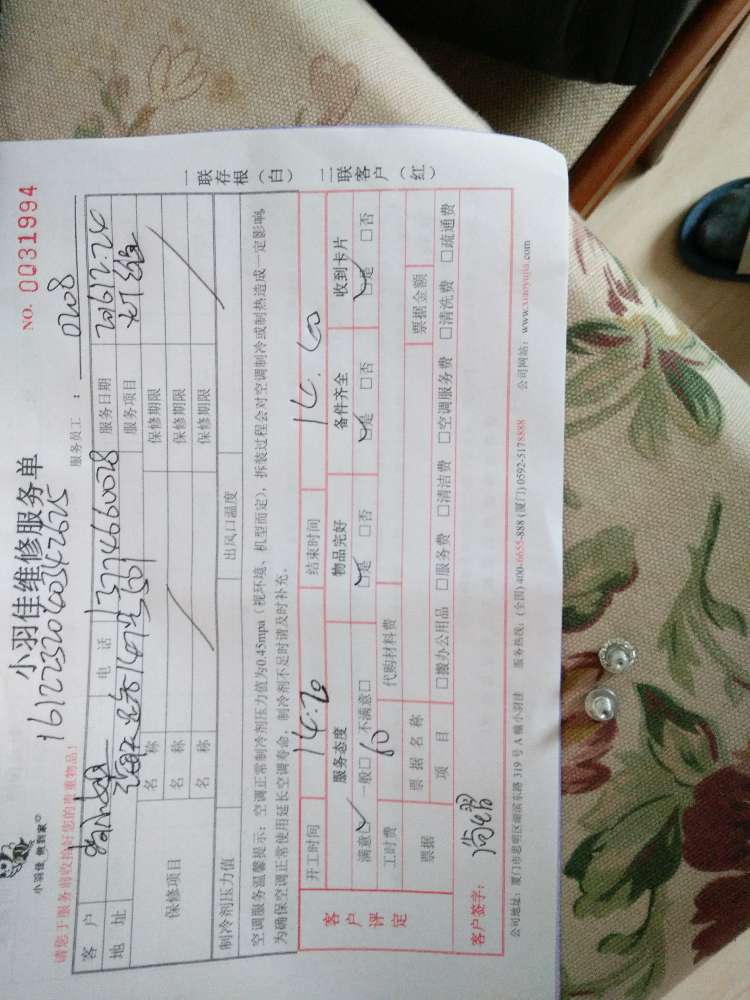 小羽佳 做到家
小羽佳维修服务单
NO. 0031994
请您于服务前收拾好您的贵重物品!
服务员工: 0208
客户 电话 13774660028 服务日期 2016.12.24
地址 服务项目
保修项目 名称 保修期限
名称 保修期限
名称 保修期限
制冷剂压力值 出风口温度
空调服务温馨提示:空调正常制冷剂压力值为0.45mpa(视环境、机型而定),拆装过程会对空调制冷或制热造成一定影响,
为确保空调正常使用延长空调寿命,制冷剂不足时请及时补充。
一联存根(白) 二联客户(红)
客户评定
开工时间 14:20 结束时间
服务态度 物品完好 备件齐全 收到卡片
满意□ 一般□ 不满意□ □是 □否 □是 □否 □是 □否
工时费 60 代购材料费
票据 票据名称 票据金额
项目 □搬办公用品 □服务费 □清洁费 □空调服务费 □清洗费 □疏通费
客户签字:
公司地址:厦门市思明区湖滨东路 319 号 A 幢小羽佳 服务热线:(全国) 400-6655-888 (厦门) 0592-5178888 公司网站:www.xiaoyujia.com